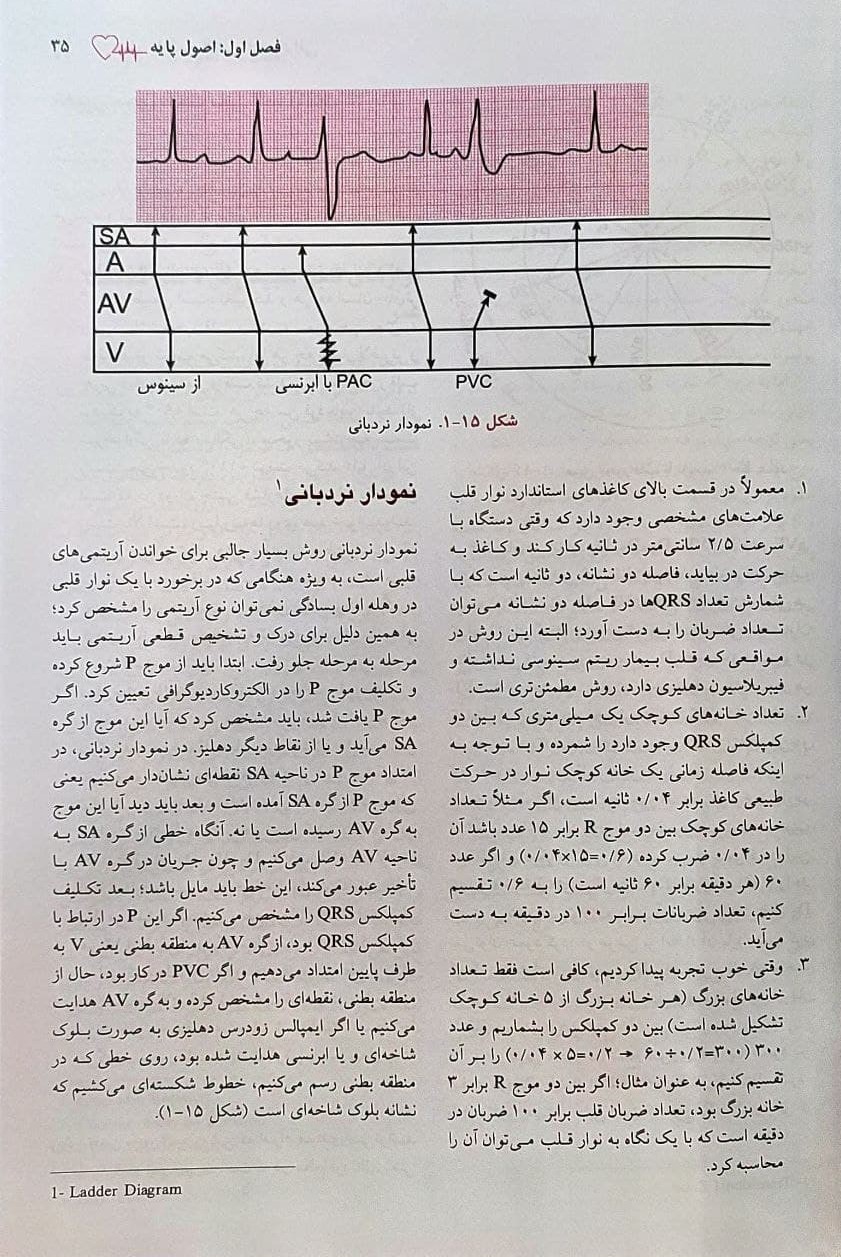 فصل اول: اصول پایه ۳۵
SA
A
AV
V
از سینوس
PAC با ابرنسی
PVC
شکل ۱۵-۱. نمودار نردبانی
۱. معمولاً در قسمت بالای کاغذهای استاندارد نوار قلب
علامت‌های مشخصی وجود دارد که وقتی دستگاه با
سرعت ۲/۵ سانتی‌متر در ثانیه کار کند و کاغذ به
حرکت در بیاید، فاصله دو نشانه، دو ثانیه است که با
شمارش تعداد QRSها در فاصله دو نشانه می‌توان
تعداد ضربان را به دست آورد؛ البته این روش در
مواقعی که قلب بیمار ریتم سینوسی نداشته و
فیبریلاسیون دهلیزی دارد، روش مطمئن‌تری است.
۲. تعداد خانه‌های کوچک یک میلی‌متری که بین دو
کمپلکس QRS وجود دارد را شمرده و با توجه به
اینکه فاصله زمانی یک خانه کوچک نوار در حرکت
طبیعی کاغذ برابر ۰/۰۴ ثانیه است، اگر مثلاً تعداد
خانه‌های کوچک بین دو موج R برابر ۱۵ عدد باشد آن
را در ۰/۰۴ ضرب کرده (۰/۰۴×۱۵=۰/۶) و اگر عدد
۶۰ (هر دقیقه برابر ۶۰ ثانیه است) را به ۰/۶ تقسیم
کنیم، تعداد ضربانات برابر ۱۰۰ در دقیقه به دست
می‌آید.
۳. وقتی خوب تجربه پیدا کردیم، کافی است فقط تعداد
خانه‌های بزرگ (هر خانه بزرگ از ۵ خانه کوچک
تشکیل شده است) بین دو کمپلکس را بشماریم و عدد
۳۰۰ (۳۰۰=۰/۲÷۶۰ → ۰/۲=۵×۰/۰۴) را بر آن
تقسیم کنیم، به عنوان مثال؛ اگر بین دو موج R برابر ۳
خانه بزرگ بود، تعداد ضربان قلب برابر ۱۰۰ ضربان در
دقیقه است که با یک نگاه به نوار قلب می‌توان آن را
محاسبه کرد.
نمودار نردبانی۱
نمودار نردبانی روش بسیار جالبی برای خواندن آریتمی‌های
قلبی است، به ویژه هنگامی که در برخورد با یک نوار قلبی
در وهله اول بسادگی نمی‌توان نوع آریتمی را مشخص کرد؛
به همین دلیل برای درک و تشخیص قطعی آریتمی باید
مرحله به مرحله جلو رفت. ابتدا باید از موج P شروع کرده
و تکلیف موج P را در الکتروکاردیوگرافی تعیین کرد. اگر
موج P یافت شد، باید مشخص کرد که آیا این موج از گره
SA می‌آید و یا از نقاط دیگر دهلیز. در نمودار نردبانی، در
امتداد موج P در ناحیه SA نقطه‌ای نشان‌دار می‌کنیم یعنی
که موج P از گره SA آمده است و بعد باید دید آیا این موج
به گره AV رسیده است یا نه. آنگاه خطی از گره SA به
ناحیه AV وصل می‌کنیم و چون جریان در گره AV با
تأخیر عبور می‌کند، این خط باید مایل باشد؛ بعد تکلیف
کمپلکس QRS را مشخص می‌کنیم. اگر این P در ارتباط با
کمپلکس QRS بود، از گره AV به منطقه بطنی یعنی V به
طرف پایین امتداد می‌دهیم و اگر PVC در کار بود، حال از
منطقه بطنی، نقطه‌ای را مشخص کرده و به گره AV هدایت
می‌کنیم یا اگر ایمپالس زودرس دهلیزی به صورت بلوک
شاخه‌ای و یا ابرنسی هدایت شده بود، روی خطی که در
منطقه بطنی رسم می‌کنیم، خطوط شکسته‌ای می‌کشیم که
نشانه بلوک شاخه‌ای است (شکل ۱۵-۱).
1- Ladder Diagram